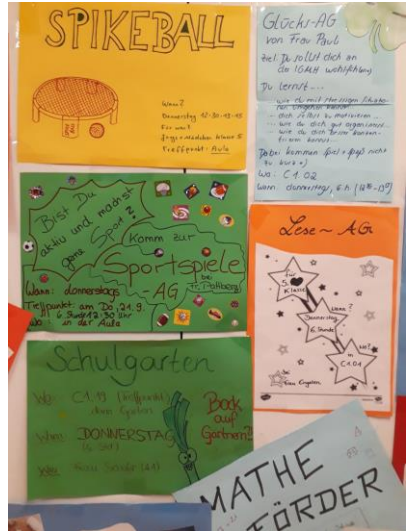 SPIKEBALL
Wann?
Donnerstag 12.30-13.15
Für wen?
Jungs + Mädchen Klasse 5
Treffpunkt: Aula
Glücks-AG
von Frau Pauls
Ziel: Du sollst dich an
der IGMH wohlfühlen
Du lernst ...
- wie du mit stressigen Situatio-
nen umgehen kannst
- dich selbst zu motivieren ...
- wie du dich gut organisierst ...
- wie du dich
Dabei kommen Spiel + Spaß nicht
zu kurz
Wo: C1.02
Wann: donnerstags, 6. h
Bist Du
aktiv und machst
gerne Sport?
Komm zur
Sportspiele
-AG
bei
Wann: donnerstags
Treffpunkt: am Do, 21.9.
6. Stunde 12:30 Uhr
Wo: in der Aula
Lese-AG
für
5.
Klasse
Wann?
Donnerstag
6. Stunde
Wo?
in
C1.01
Bei
Frau
Schulgarten
Wo: C1.19 (Treffpunkt)
dann Garten
Wann: DONNERSTAG
(6. Std.)
Wer: Frau
Bock
auf
Gärtnern?
MATHE
FÖRDER